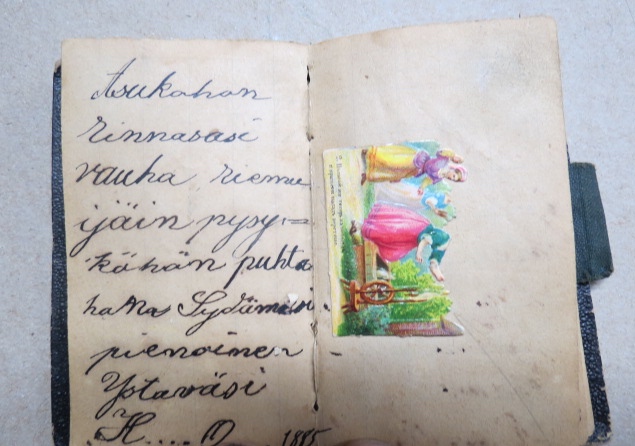 Asukohon
rinnasasi
rauha riemu
ijäin pysy=
köhön puhta
hanas Sydämesi
pienoinen
Ystäväsi
H.... O 1885